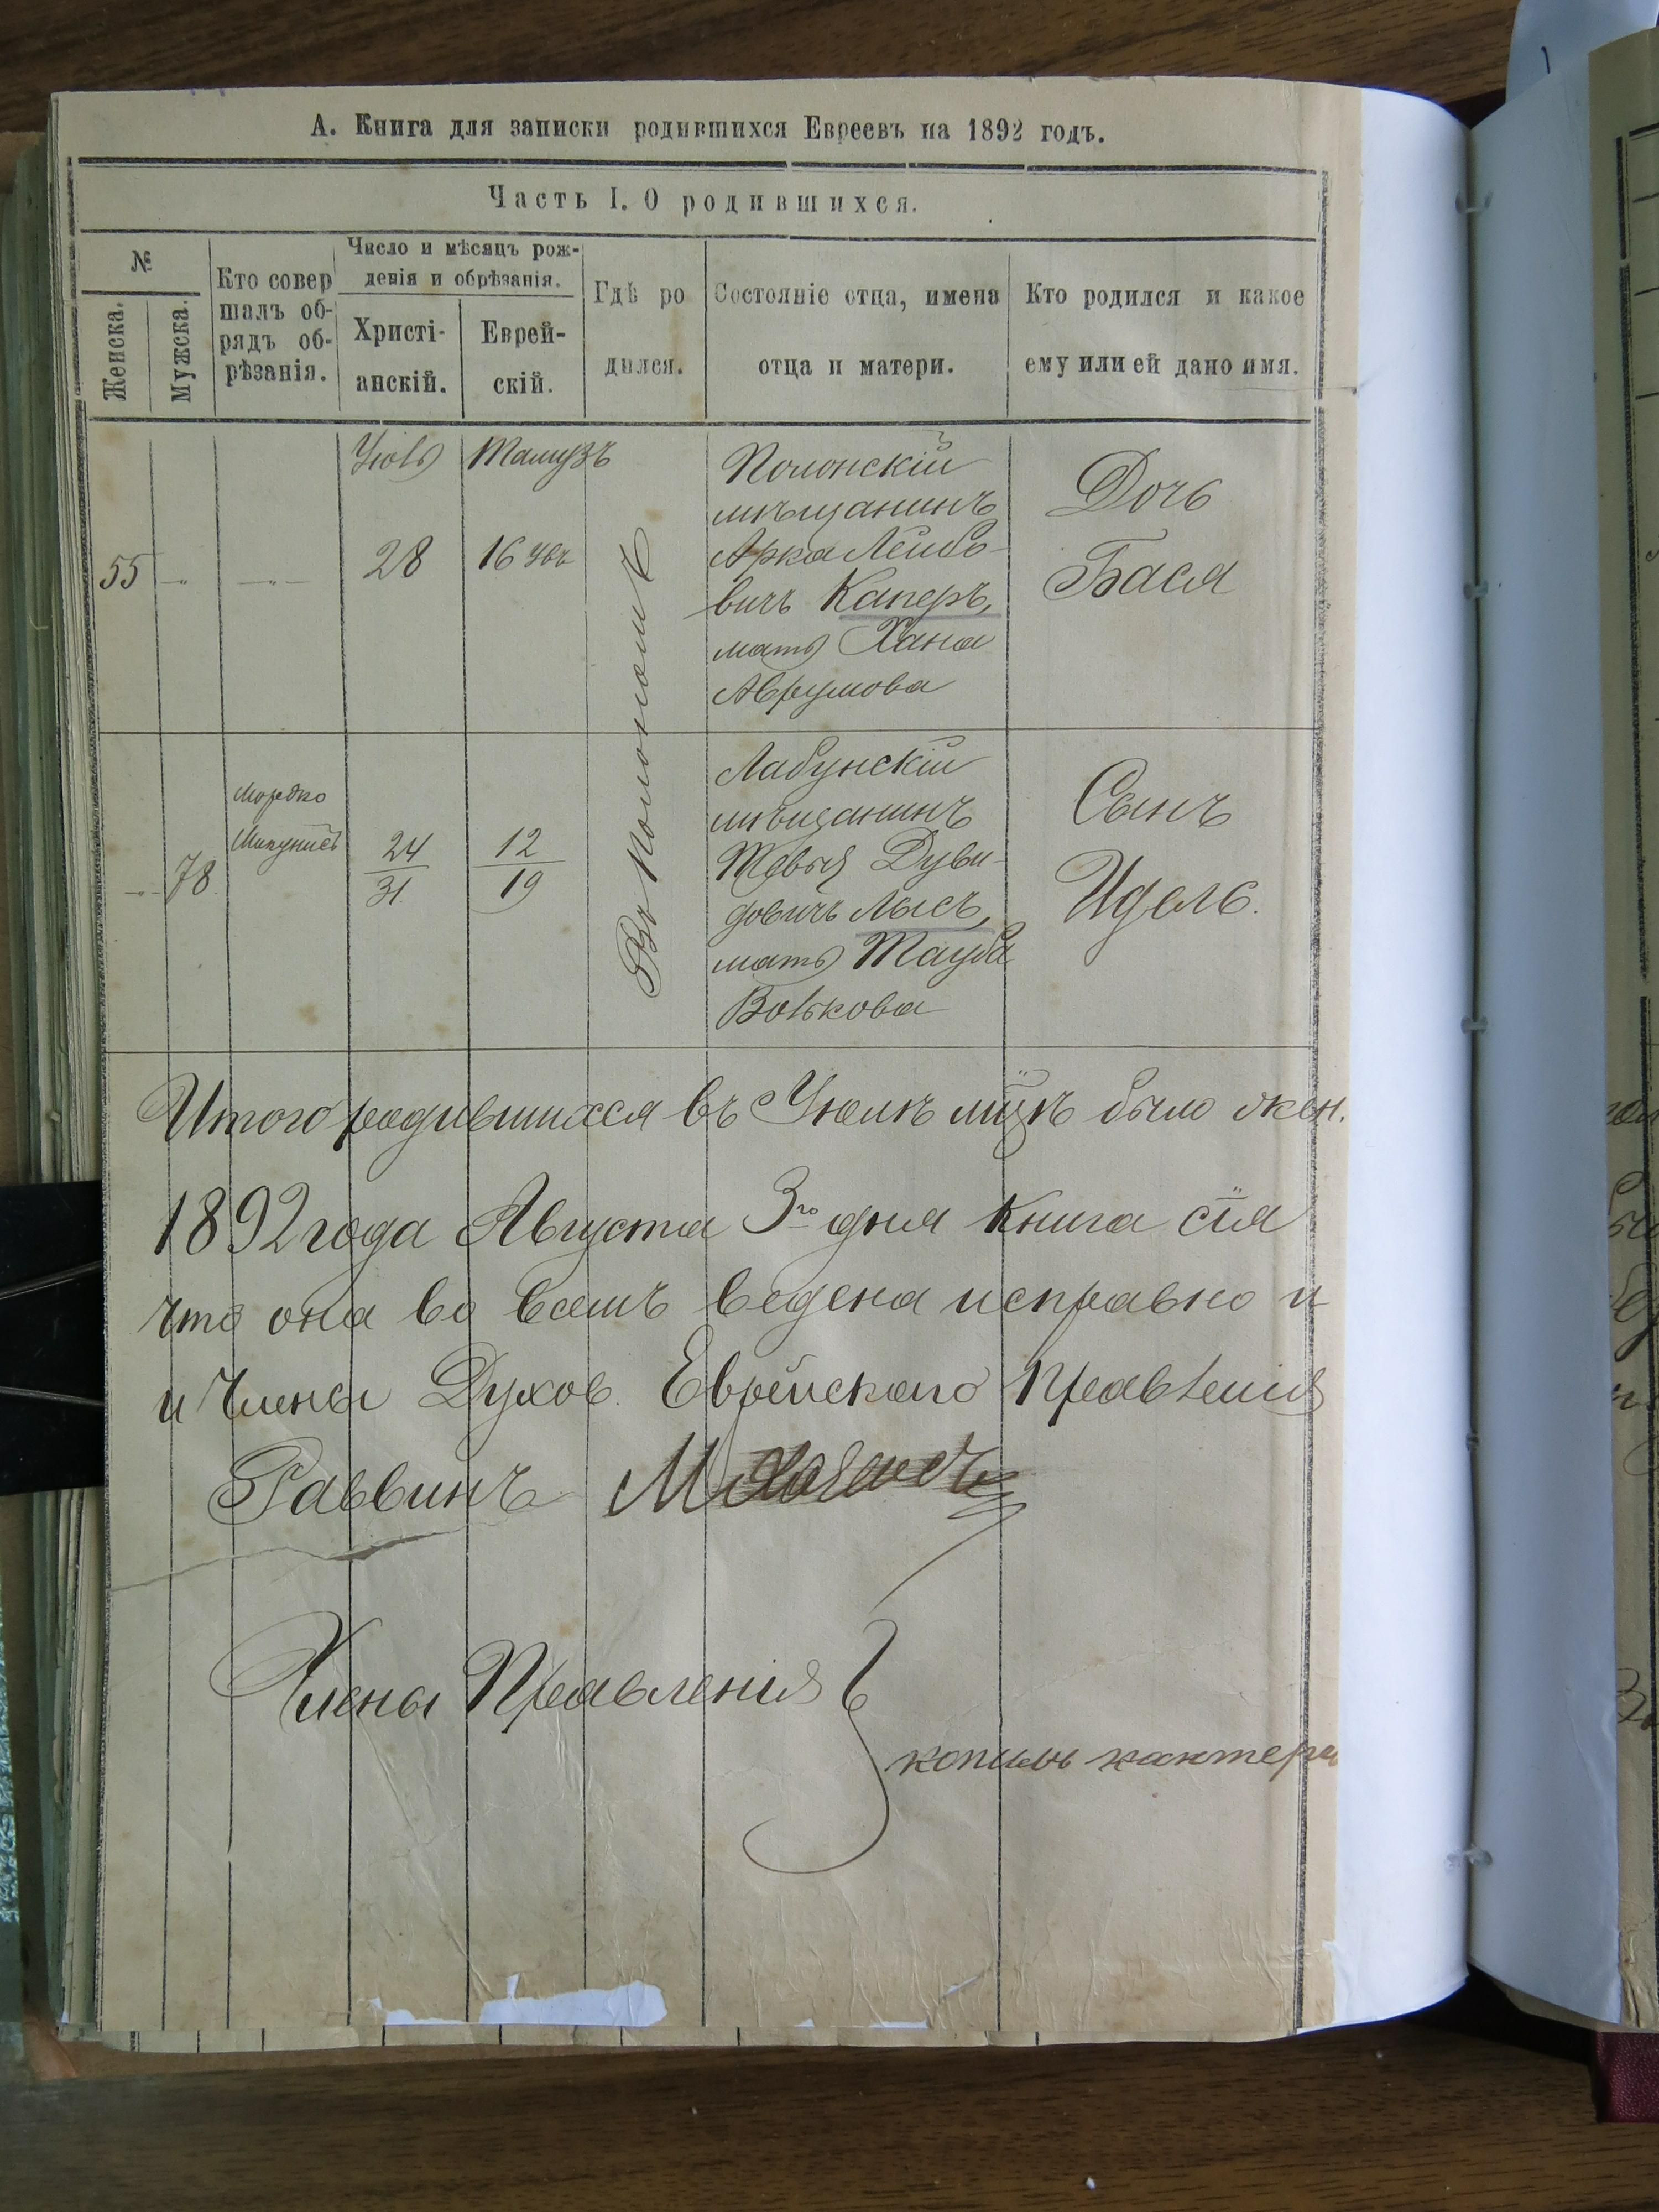 А. Книга для записки родившихся Евреевъ на 1892 годъ.
Часть I. О родившихся.
№
Женска.
Мужска.
Кто совер
шалъ об-
рядъ об-
рѣзанія.
Число и мѣсяцъ рож-
денія и обрѣзанія.
Христі-
анскій.
Еврей-
скій.
Гдѣ ро
дился.
Состояніе отца, имена
отца и матери.
Кто родился и какое
ему или ей дано имя.
Іюль
Тамузъ
55
28
16
Въ Полономъ
Полонскій
мѣщанинъ
Арка Лейбо-
вичъ Каперъ,
мать Хана
Аврумова
Дочь
Бася
78
Мордко
24
31
12
19
Лабунскій
мѣщанинъ
Товья Дуви-
довичъ Лысъ,
мать Тауба
Волькова
Сынъ
Идель.
Итого родившихся въ Іюлѣ мцѣ было жен.
1892 года Августа 3го дня книга сія
что она во всемъ ведена исправно и
и Члены Духов. Еврейскаго Правленія
Раввинъ
Члены Правленія